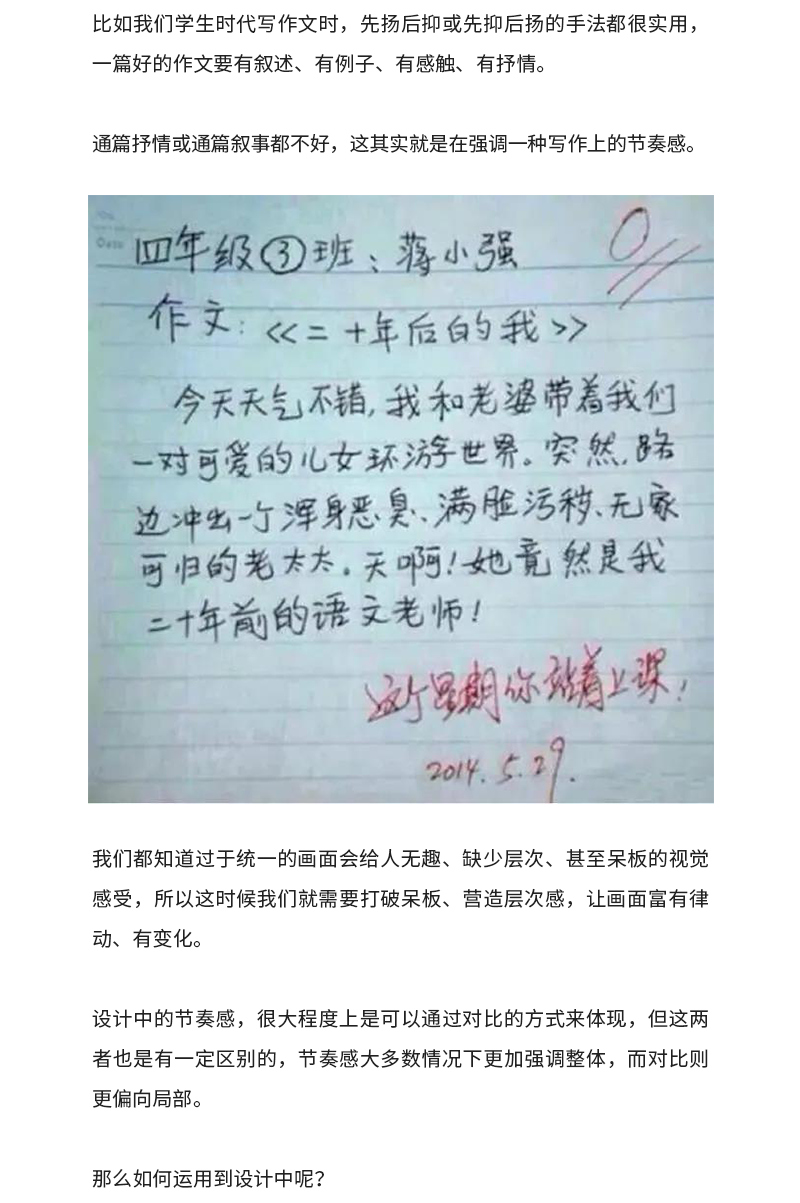 比如我们学生时代写作文时，先扬后抑或先抑后扬的手法都很实用，
一篇好的作文要有叙述、有例子、有感触、有抒情。
通篇抒情或通篇叙事都不好，这其实就是在强调一种写作上的节奏感。
Date
0
四年级③班：蒋小强
作文：<<二十年后的我>>
今天天气不错，我和老婆带着我们
一对可爱的儿女环游世界。突然，路
边冲出一个浑身恶臭、满脸污秽、无家
可归的老太太。天啊！她竟然是我
二十年前的语文老师！
这个星期你站着上课！
2014.5.29.
我们都知道过于统一的画面会给人无趣、缺少层次、甚至呆板的视觉
感受，所以这时候我们就需要打破呆板、营造层次感，让画面富有律
动、有变化。
设计中的节奏感，很大程度上是可以通过对比的方式来体现，但这两
者也是有一定区别的，节奏感大多数情况下更加强调整体，而对比则
更偏向局部。
那么如何运用到设计中呢？